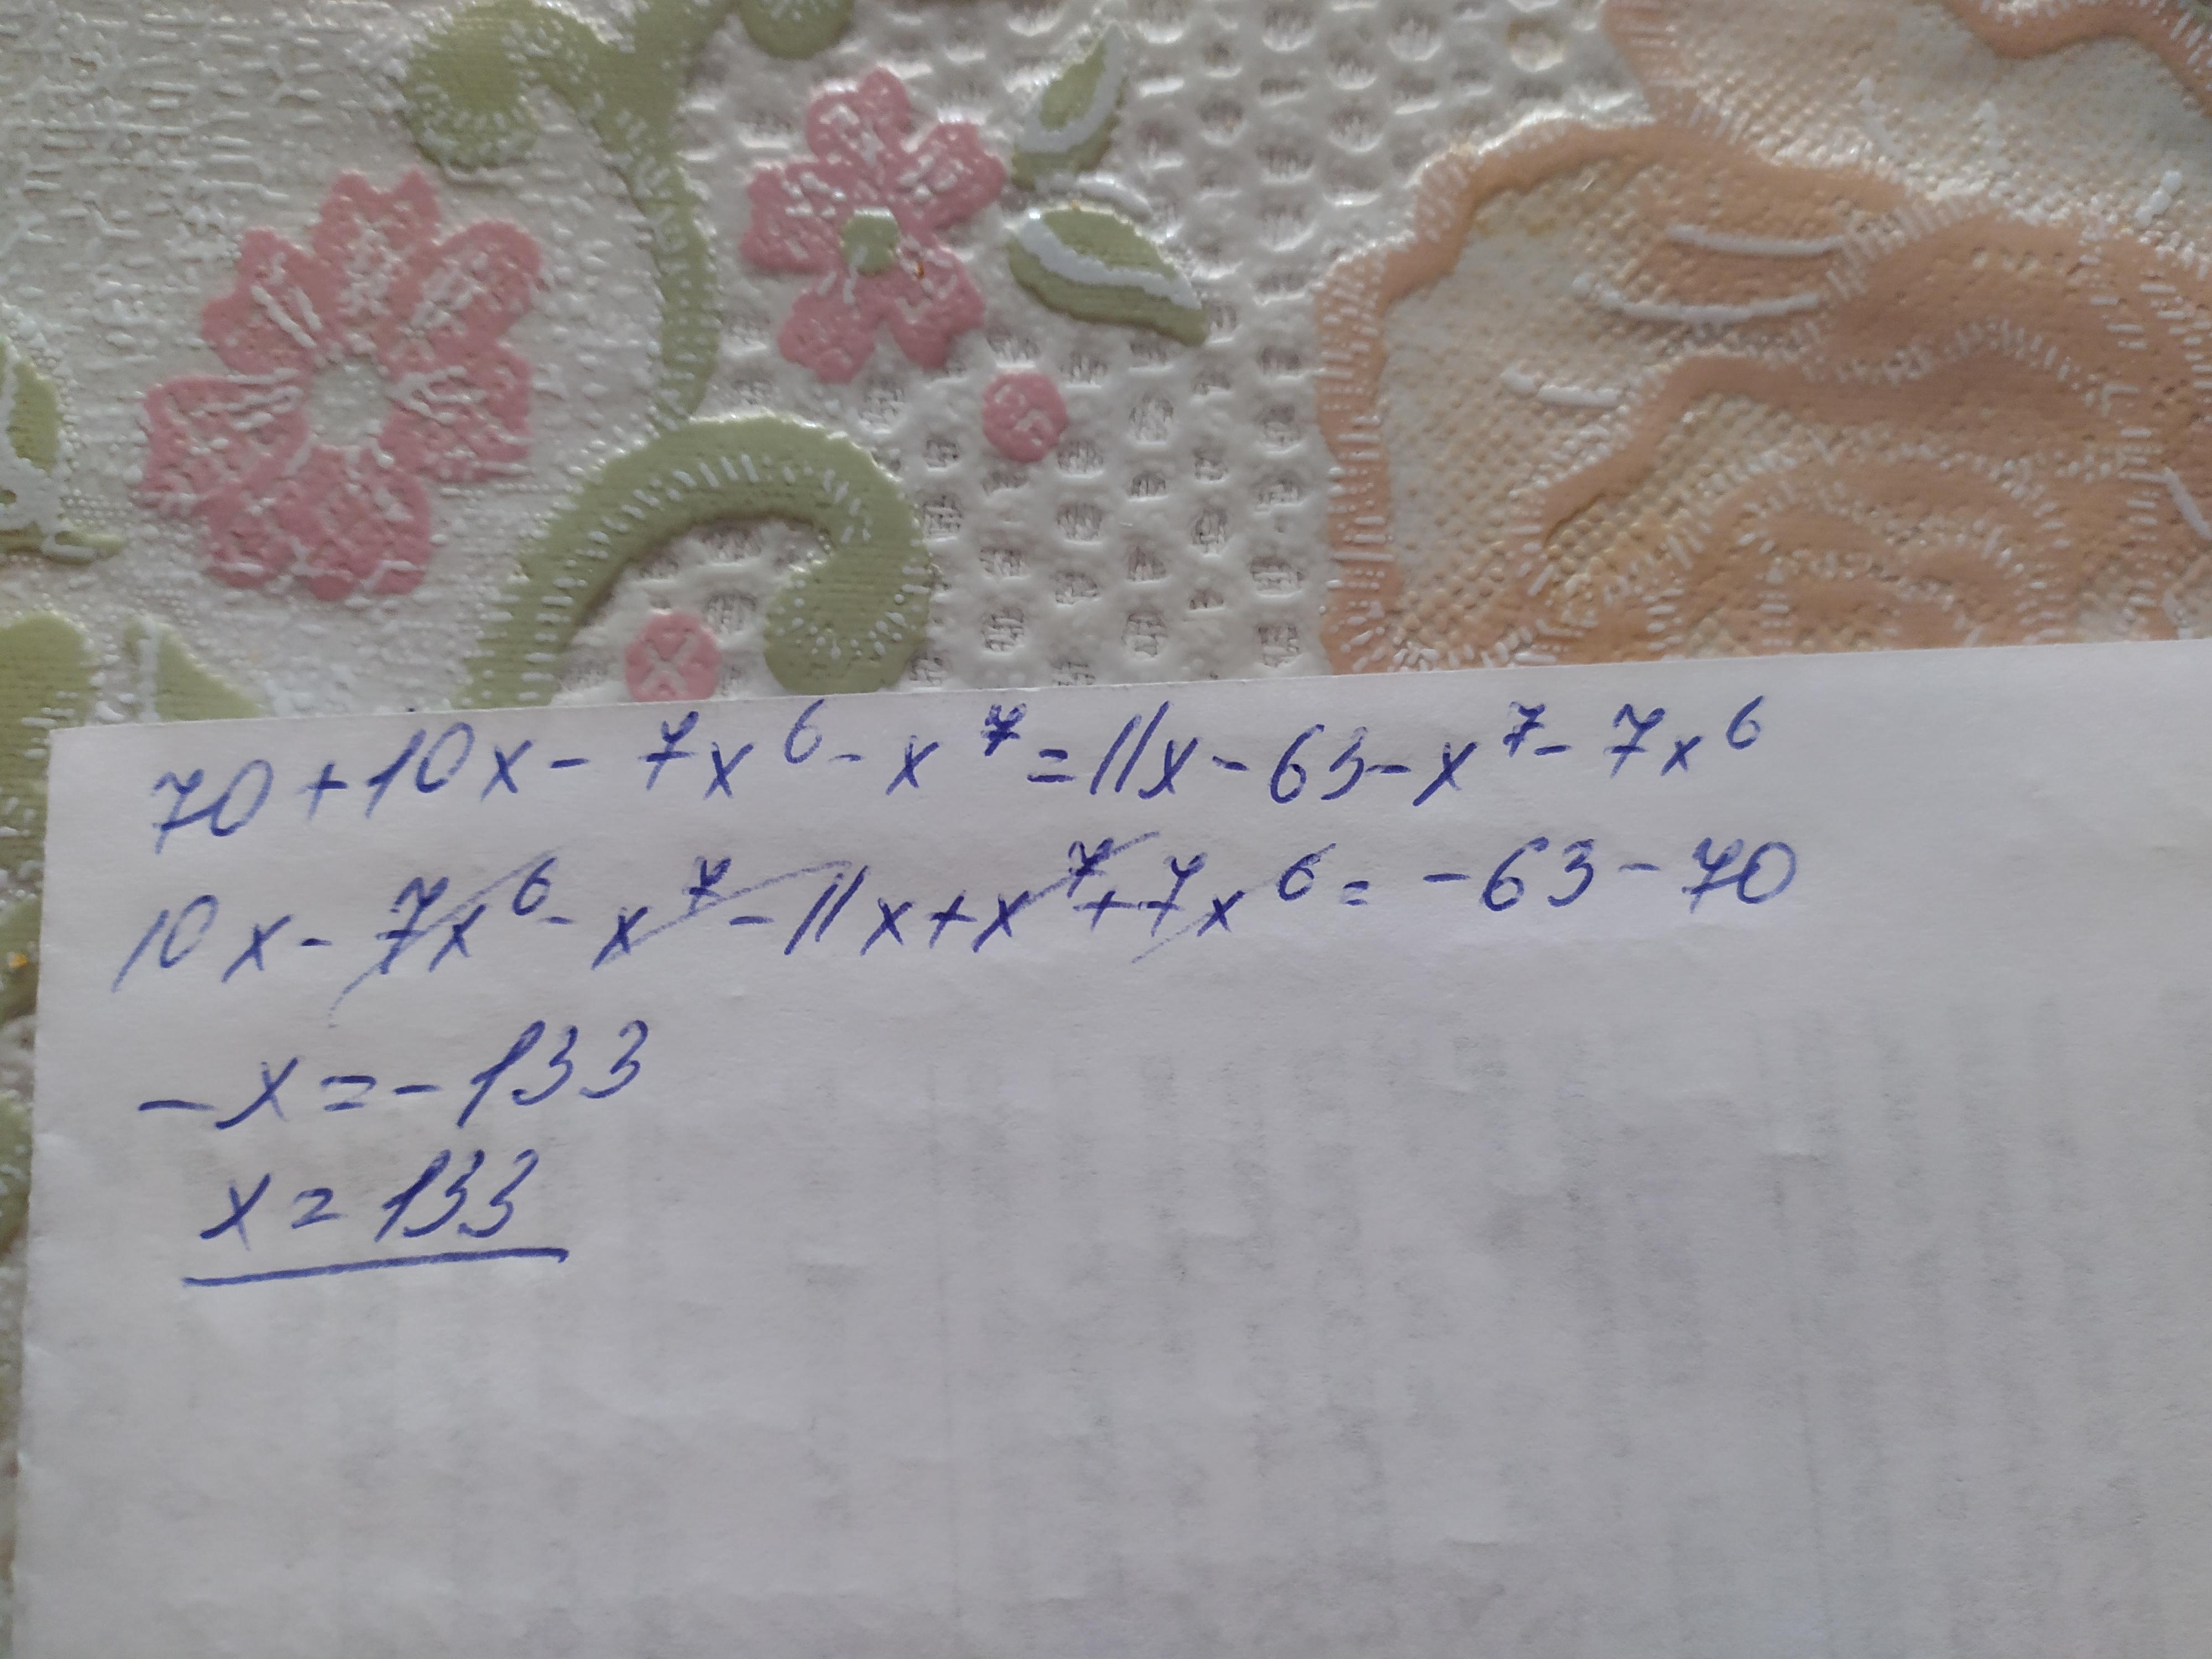 70+10x-7x⁶-x⁷=11x-63-x⁷-7x⁶
10x-7x⁶-x⁷-11x+x⁷+7x⁶=-63-70
-x=-133
x=133